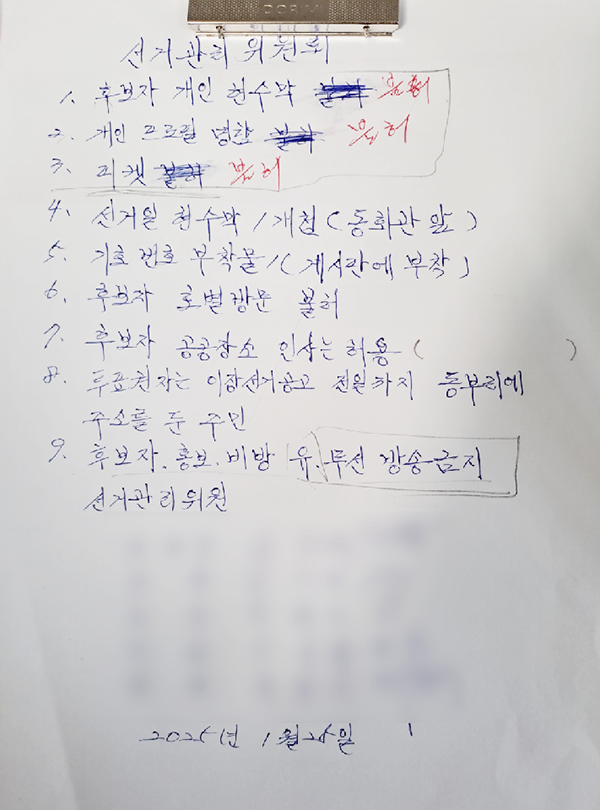 DORIM
선거관리 위원회
1. 후보자 개인 현수막 불허 용허
2. 개인 프로필 명함 불허 용허
3. 피켓 불허 불허
4. 선거일 현수막 1개첩 (동회관 앞)
5. 기호 번호 부착물 1 (게시판에 부착)
6. 후보자 호별방문 불허
7. 후보자 공공장소 인사는 허용 ( )
8. 투표권자는 이장선거공고 전일까지 동부리에
주소를 둔 주민
9. 후보자. 홍보. 비방 유.무선 방송금지
선거관리위원
2025년 1월 25일